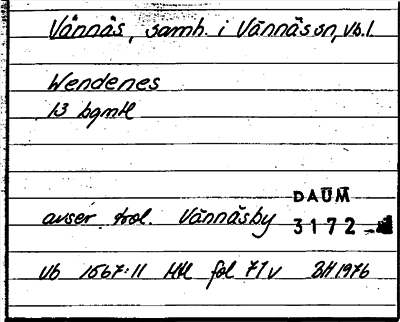 Vännäs, samh. i Vännäs sn, Vb.l.
Wendenes
13 bgmtl
DAUM
avser trol. Vännäsby 3172
Vb 1567:11 Mtl fol 71v BH 1976